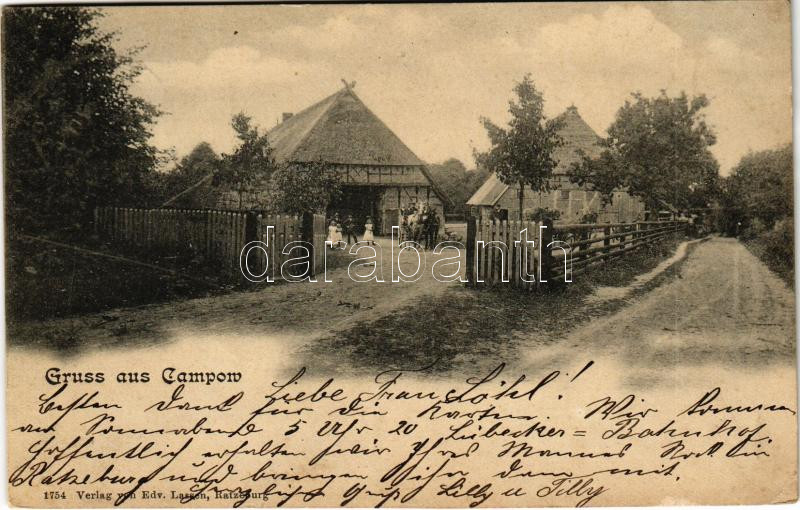 darabanth
Gruss aus Campow
Liebe Frau Löhl!
Besten Dank für die Karten. Wir kommen
am Sonnabend 5 Uhr 20 Lübecker = Bahnhof
Hoffentlich erhalten wir Ihres Mannes Rock in
Ratzeburg und bringen ihn dann mit.
Herzlichst Gruß Lilly u Tilly
1754 Verlag von Edv. Lassen, Ratzeburg